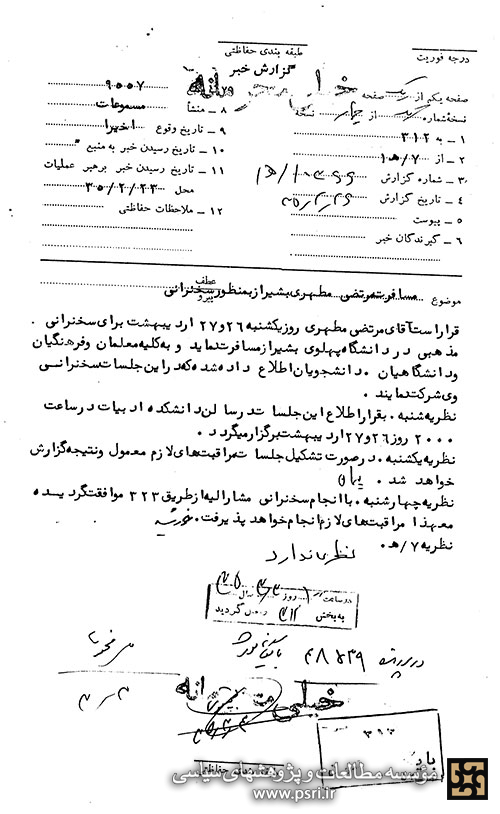 طبقه بندی حفاظتی
درجه فوریت
گزارش خبر
خیلی محرمانه
صفحه یکم از یک صفحه
نسخه شماره یک از چهار نسخه
۱ ـ به ۳۱۲
۲ ـ از ۷/ه
۳ ـ شماره گزارش
۴ ـ تاریخ گزارش
۵ ـ پیوست
۶ ـ گیرندگان خبر
۹۵۵۷
۸ ـ منشأ مسموعات
۹ ـ تاریخ وقوع اخیرا
۱۰ ـ تاریخ رسیدن خبر به منبع
۱۱ ـ تاریخ رسیدن خبر برهبر عملیات
محل ۳۵/۲/۲۳
۱۲ ـ ملاحظات حفاظتی
موضوع مسافرت مرتضی مطهری بشیراز بمنظور سخنرانی
عطف
پیرو
قرار است آقای مرتضی مطهری روز یکشنبه ۲۶ و ۲۷ اردیبهشت برای سخنرانی
مذهبی در دانشگاه پهلوی بشیراز مسافرت نماید و به کلیه معلمان و فرهنگیان
و دانشگاهیان ۰ دانشجویان اطلاع داده شده که در این جلسات سخنرانی
وی شرکت نمایند ۰
نظریه شنبه ۰ بقرار اطلاع این جلسات در سالن دانشکده ادبیات در ساعت
۲۰۰۰ روز ۲۶ و ۲۷ اردیبهشت برگزار میگردد ۰
نظریه یکشنبه ۰ در صورت تشکیل جلسات مراقبت های لازم معمول و نتیجه گزارش
خواهد شد ۰
نظریه چهارشنبه ۰ با انجام سخنرانی مشارالیه از طریق ۳۲۳ موافقت گردیده
معهذا مراقبت های لازم انجام خواهد پذیرفت ۰
نظریه ۷/ه ۰
نظری ندارد
در ساعت روز سال
به بخش ۳۱۲ گردید
در پرونده
خیلی محرمانه
۳۱۲
طبقه بندی حفاظتی
مؤسسه مطالعات و پژوهشهای سیاسی
www.psri.ir